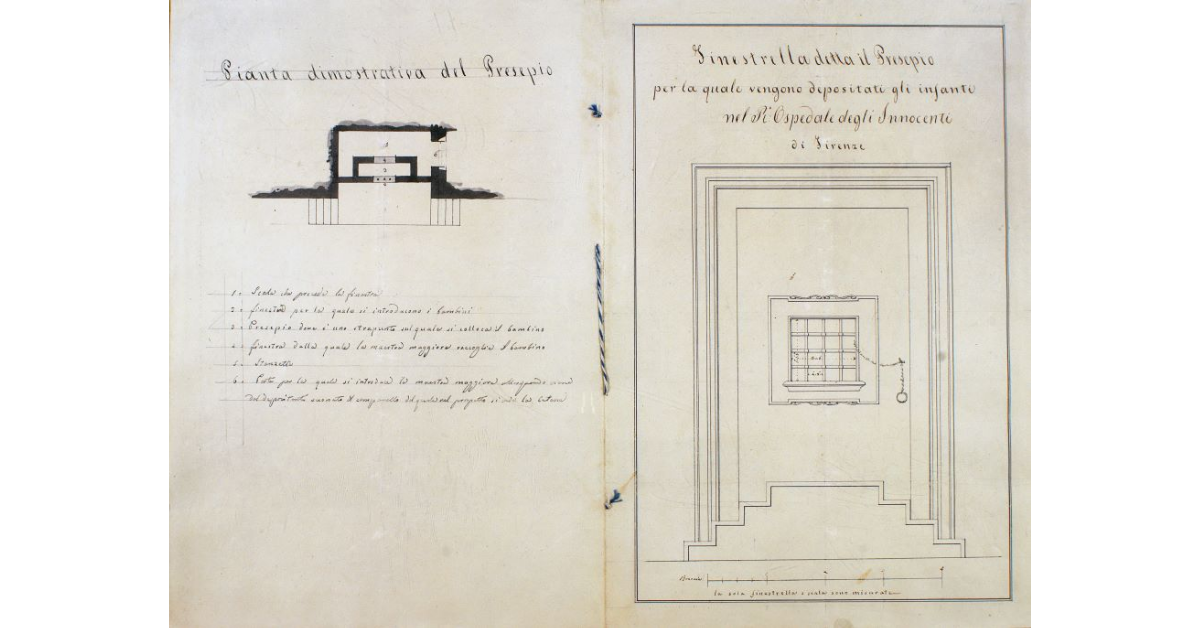 Pianta dimostrativa del Presepio
1. Scala che precede la finestra
2. finestra per la quale si introducono i bambini
3. Presepio dove è uno strapunto sul quale si colloca il bambino
4. finestra dalla quale la maestra maggiore raccoglie il bambino
5. Stanzetta
6. Porta per la quale si introduce la maestra maggiore
suonato il campanello del quale nel prospetto si vede la catena
Finestrella detta il Presepio
per la quale vengono depositati gli infanti
nel R. Ospedale degli Innocenti
di Firenze
Braccia
la sola finestrella e scala sono misurate